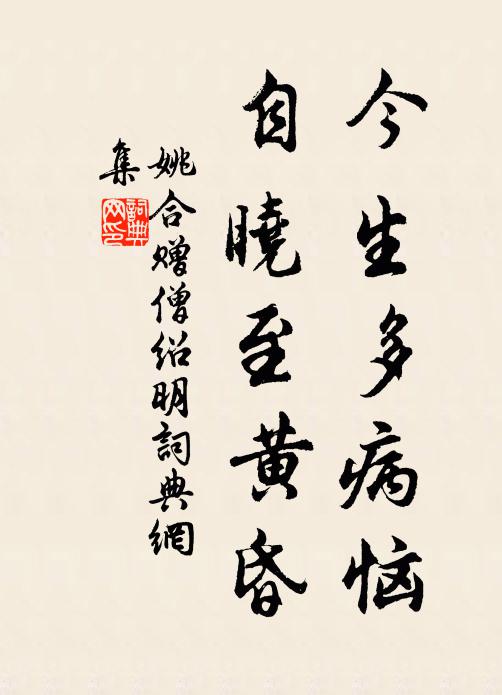 今生多病恼
自曉至黄昏
姚合赠僧绍明詞典網
集
詞典
网印